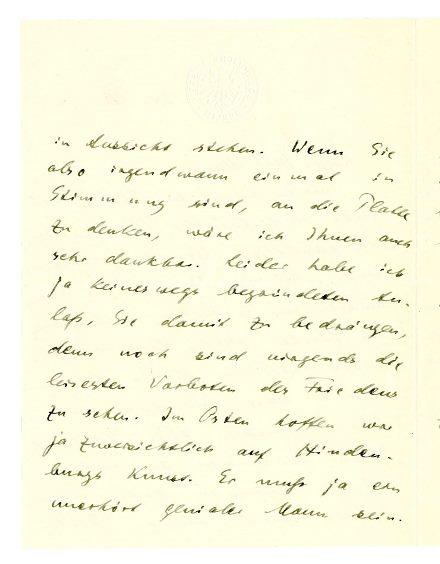 in Aussicht stehen. Wenn Sie
also irgendwann einmal in
Stimmung sind, an die Platte
zu denken, wäre ich Ihnen auch
sehr dankbar. Leider habe ich
ja keineswegs begründeten An-
laß, Sie damit zu bedrängen,
denn noch sind nirgends die
leisesten Vorboten des Friedens
zu sehen. Im Osten hoffen wir
ja zuversichtlich auf Hinden-
burgs Kunst. Er muß ja ein
unerhört genialer Mann sein.